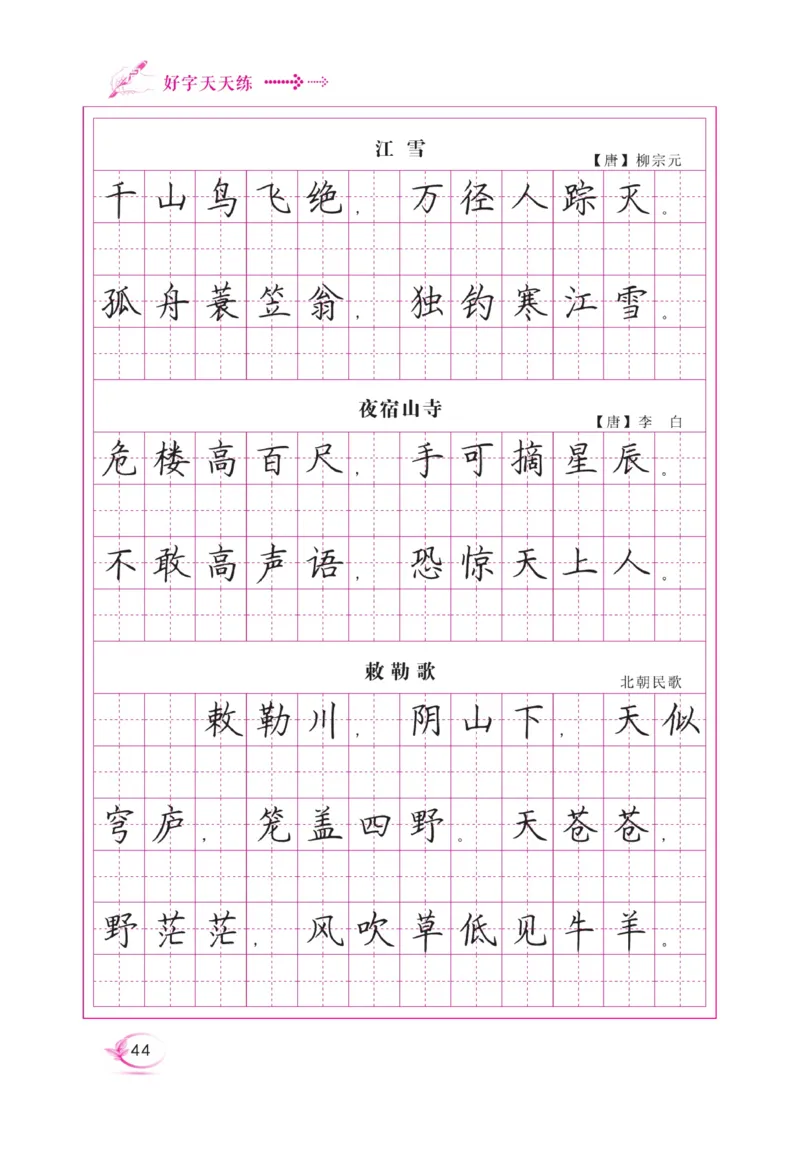 好字天天练
江雪
【唐】柳宗元
千山鸟飞绝，万径人踪灭。
孤舟蓑笠翁，独钓寒江雪。
夜宿山寺
【唐】李 白
危楼高百尺，手可摘星辰。
不敢高声语，恐惊天上人。
敕勒歌
北朝民歌
敕勒川，阴山下，天似
穹庐，笼盖四野。天苍苍，
野茫茫，风吹草低见牛羊。
44